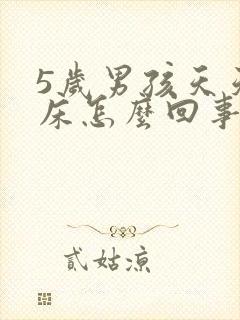 5歲男孩天天
床怎麼回事
貳姑涼